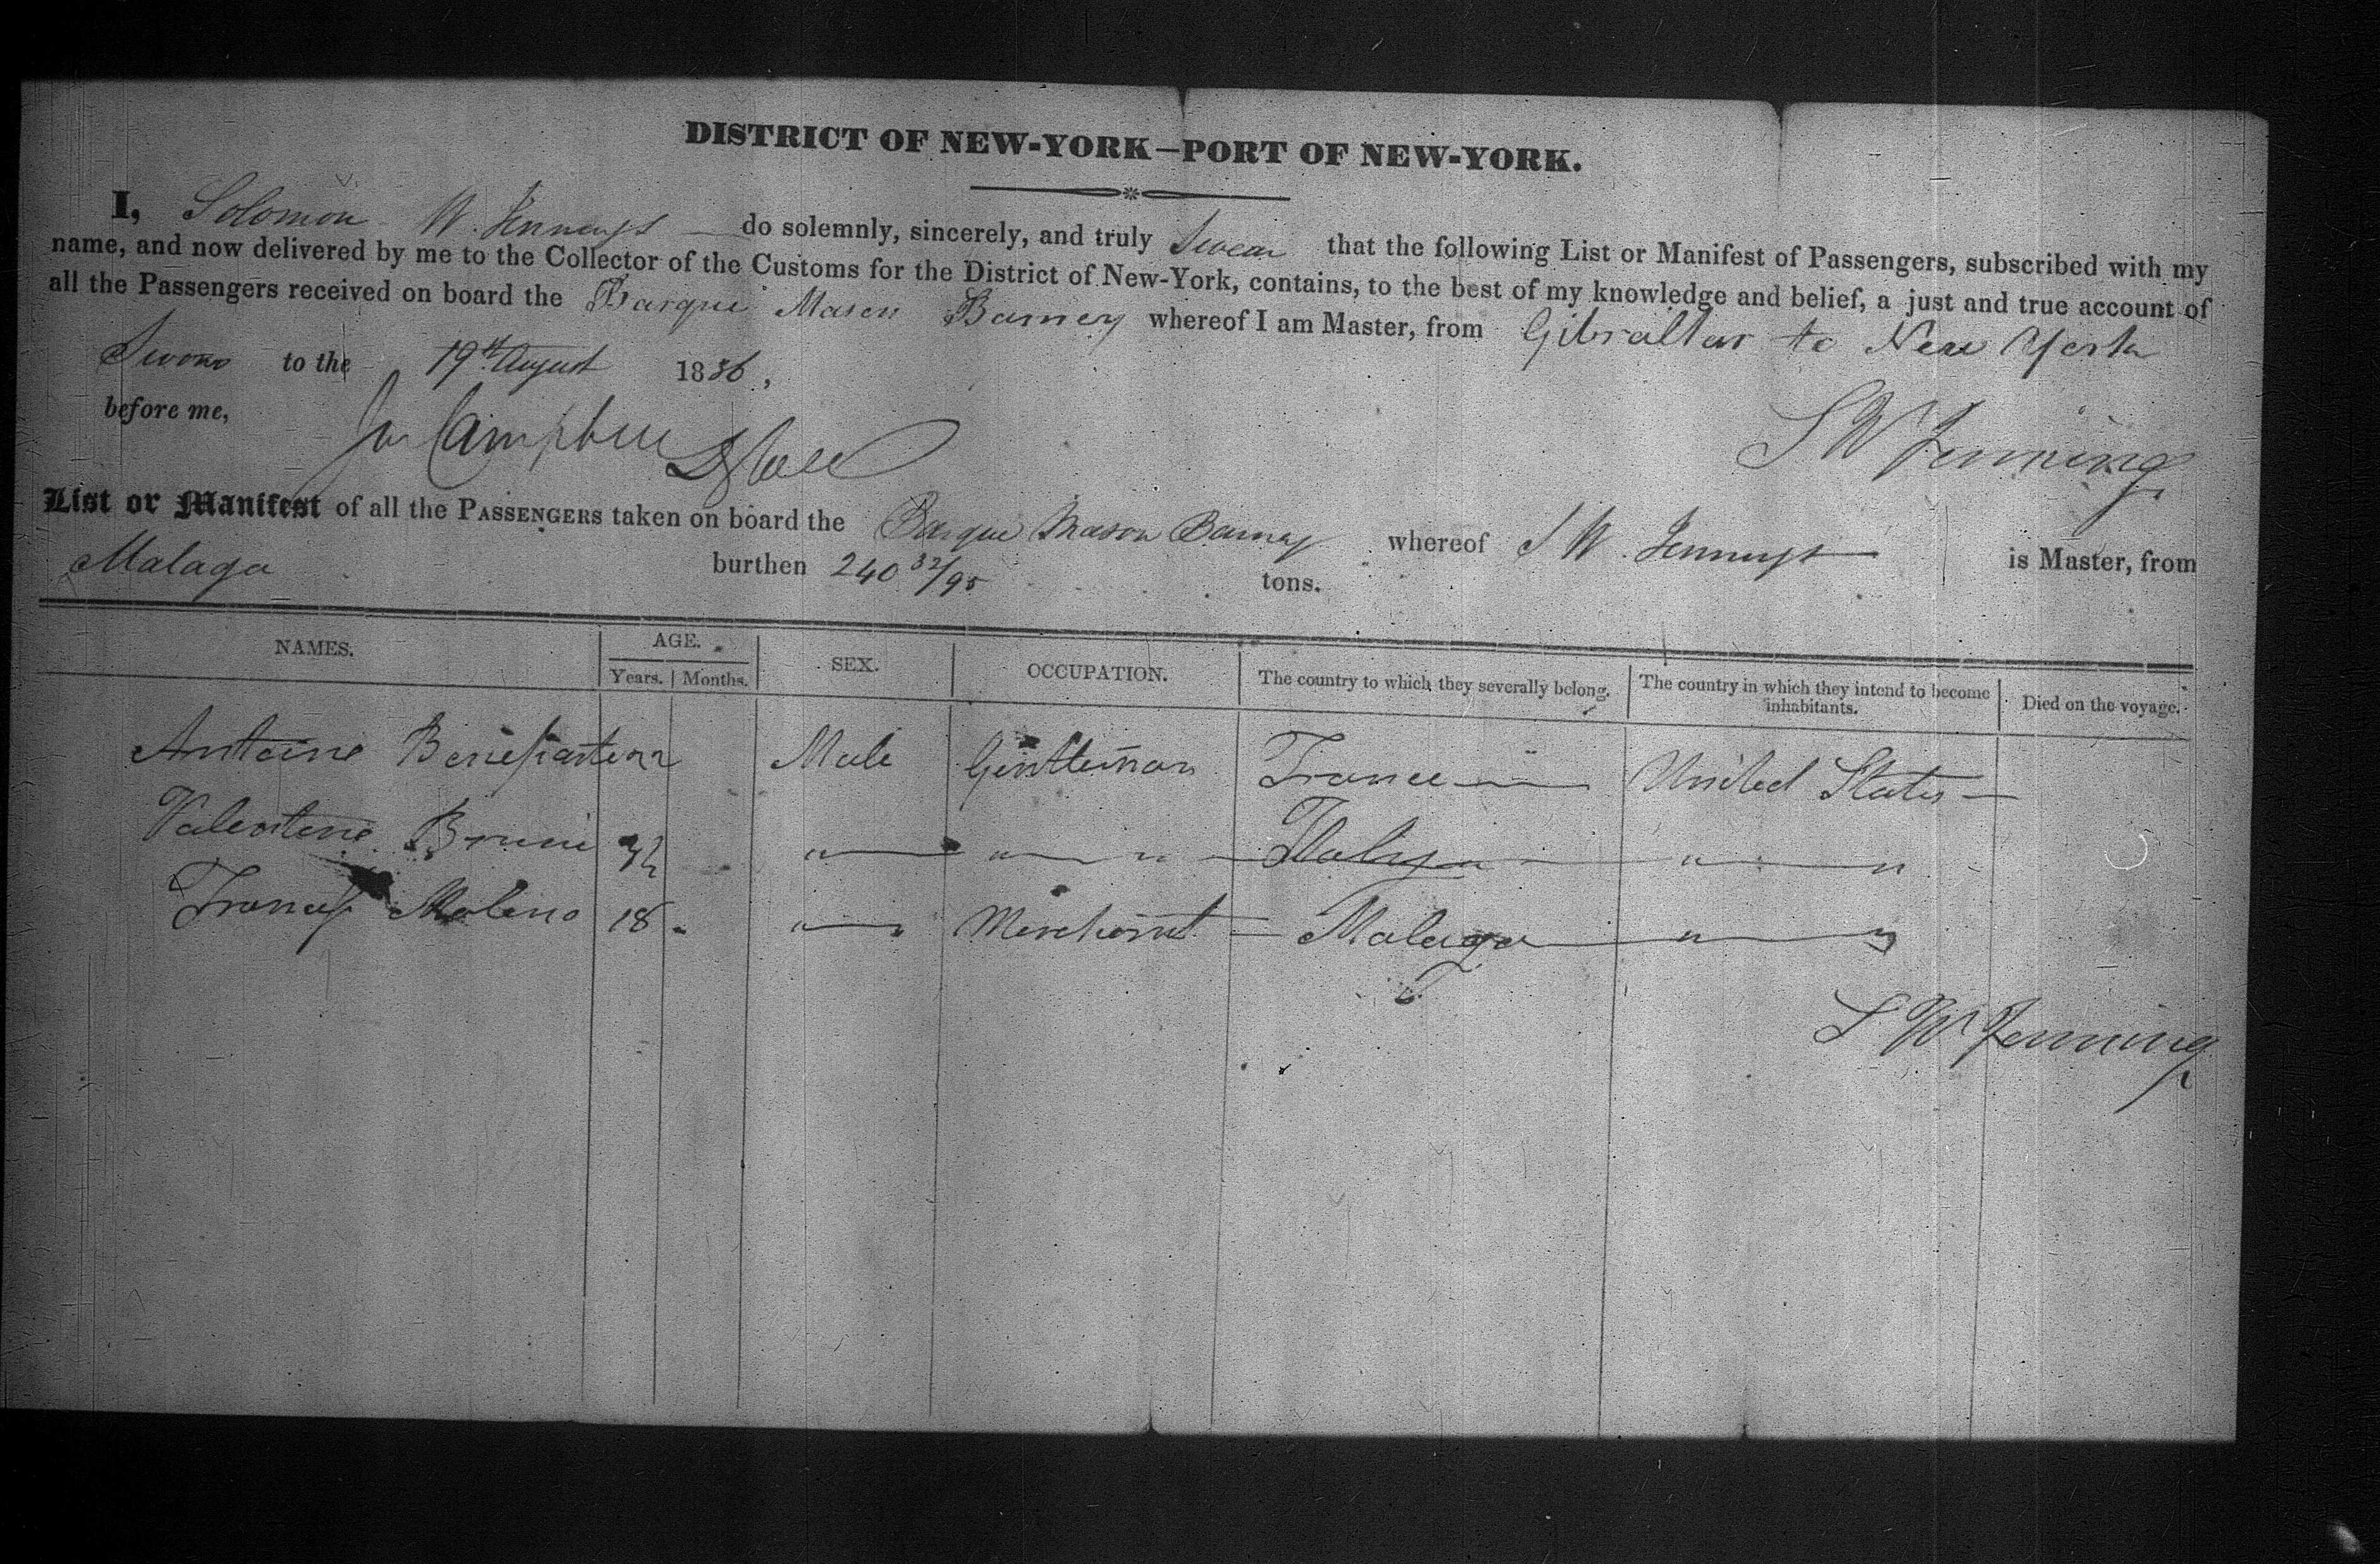 DISTRICT OF NEW-YORK—PORT OF NEW-YORK.
I, Solomon W. Jennings do solemnly, sincerely, and truly Swear that the following List or Manifest of Passengers, subscribed with my
name, and now delivered by me to the Collector of the Customs for the District of New-York, contains, to the best of my knowledge and belief, a just and true account of
all the Passengers received on board the Barque Mason Barney whereof I am Master, from Gibraltar to New York
Sworn to the 19th August 1836,
before me,
Campbell
S W Jennings
List or Manifest of all the PASSENGERS taken on board the Barque Mason Barney whereof S W. Jennings is Master, from
Malaga burthen 240 32/95 tons.
NAMES. AGE. SEX. OCCUPATION. The country to which they severally belong. The country in which they intend to become inhabitants. Died on the voyage.
Years. Months.
Antoine Male Gentleman France United States
Valentine Bruni 32 " " " " "
Francis Molino 18 " " Merchant Malaga " "
S. W Jennings